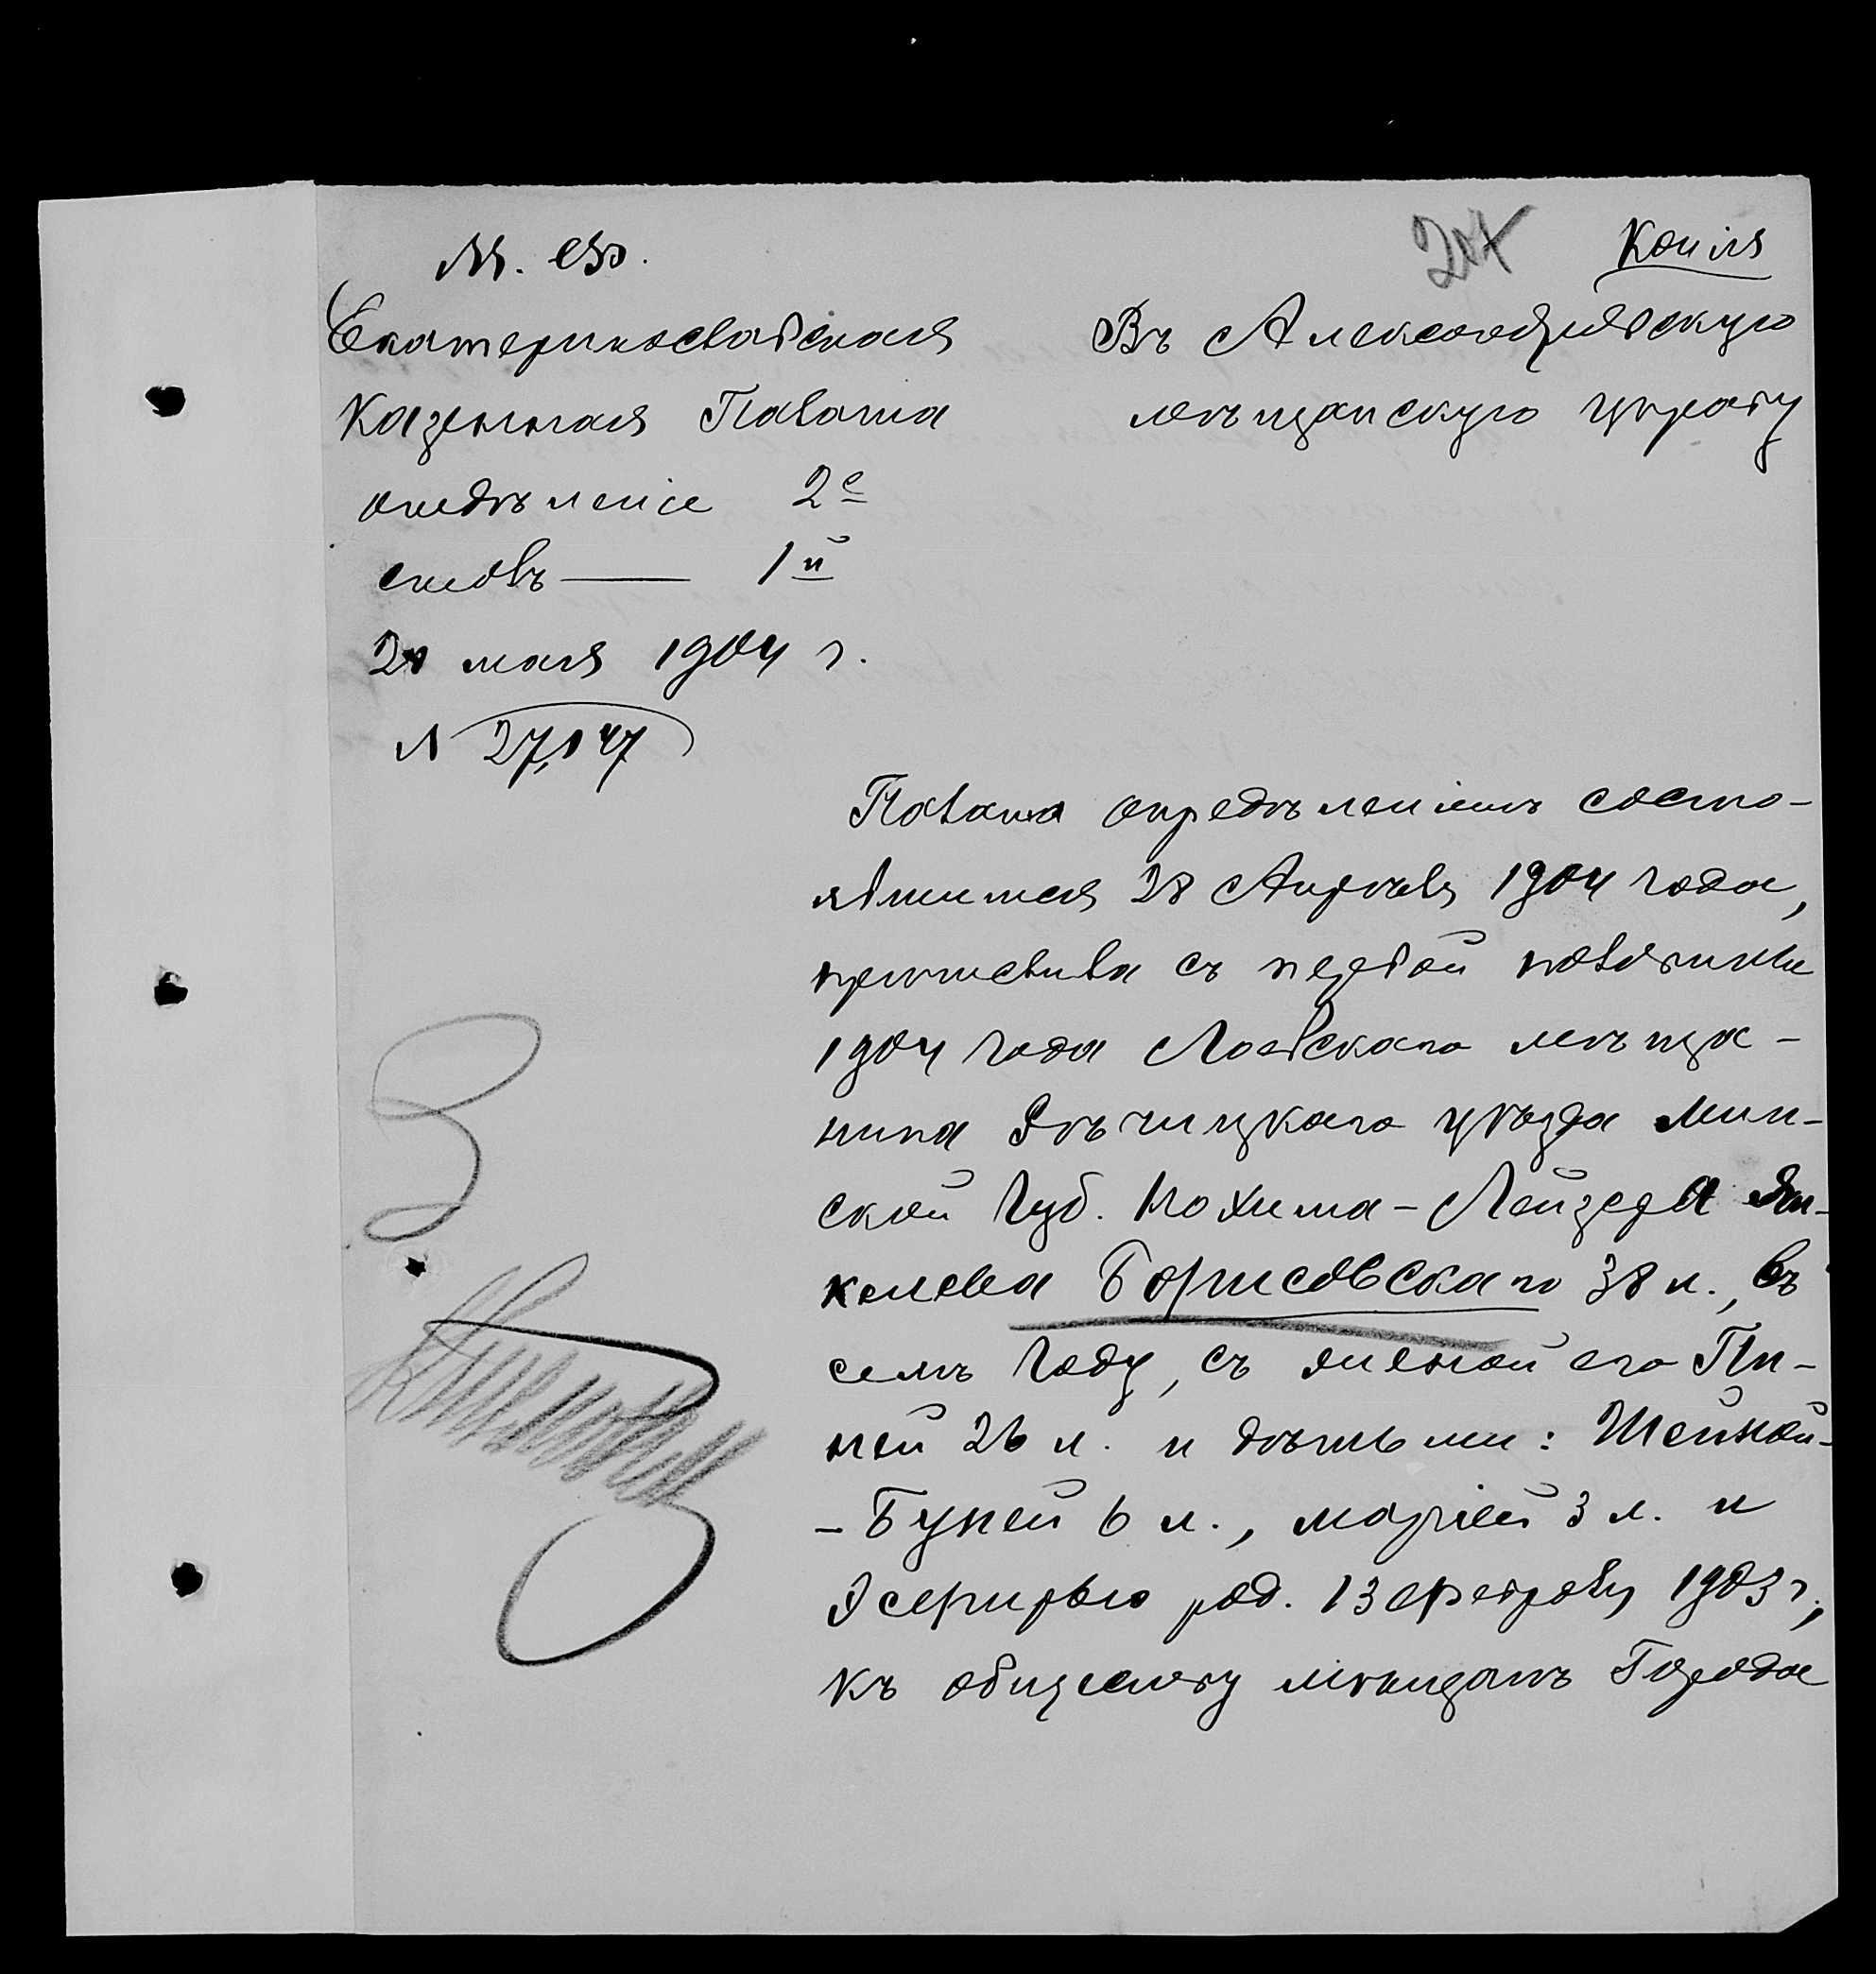 М. Ф.
Копія
Екатеринославская
Казенная Палата
отдѣленіе 2е
столъ — 1й
20 мая 1904 г.
№ 27,147
Въ Александровскую
мѣщанскую управу
Палата опредѣленіемъ состо-
явшимся 28 Апрѣля 1904 года,
причислила съ первой половины
1904 года Лоевскаго мѣща-
нина Рѣчицкаго уѣзда Мин-
ской Губ. Нохима-Лейзера Ян-
келева Борисовскаго 38 л., въ
семъ году, съ женой его Пи-
ней 26 л. и дѣтьми: Шейной-
-Буней 6 л., Маріей 3 л.  и
Эсфирью род. 13 Февраля 1903 г.,
къ обществу мѣщанъ Города